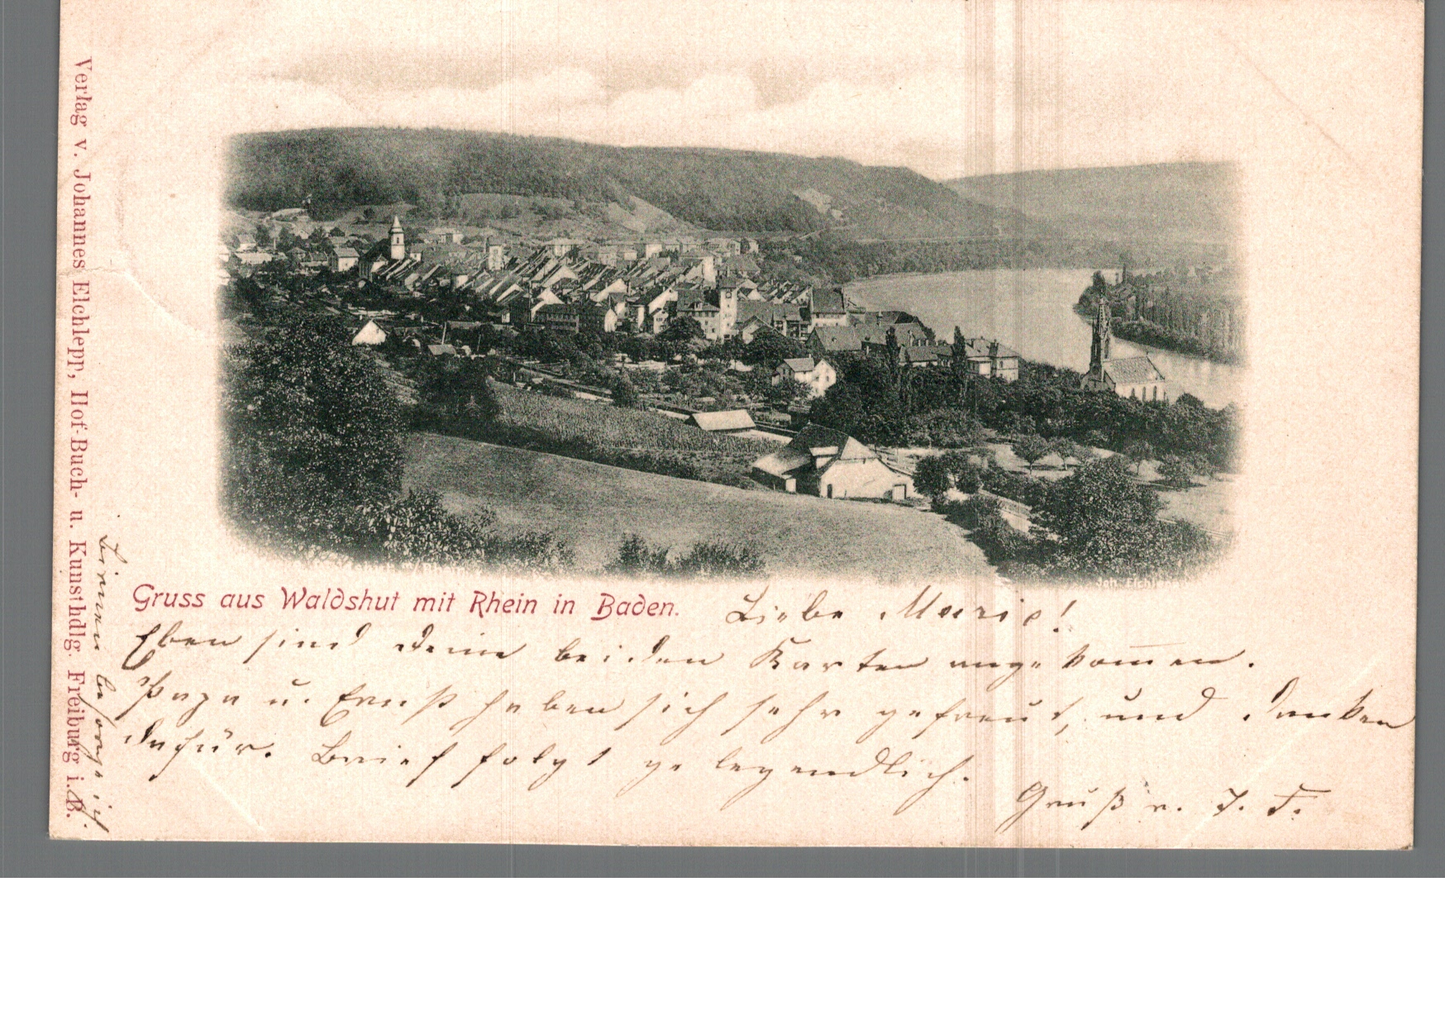 Verlag v. Johannes Elchlepp, Hof-Buch- u. Kunsthdlg. Freiburg i. B.
Gruss aus Waldshut mit Rhein in Baden.
Liebe Marie!
Eben sind deine beiden Karten angekommen.
Papa u. Ernst haben sich sehr gefreut, und danken
dafür. Brief folgt gelegendlich.
Gruß v. J. F.
besorge ich